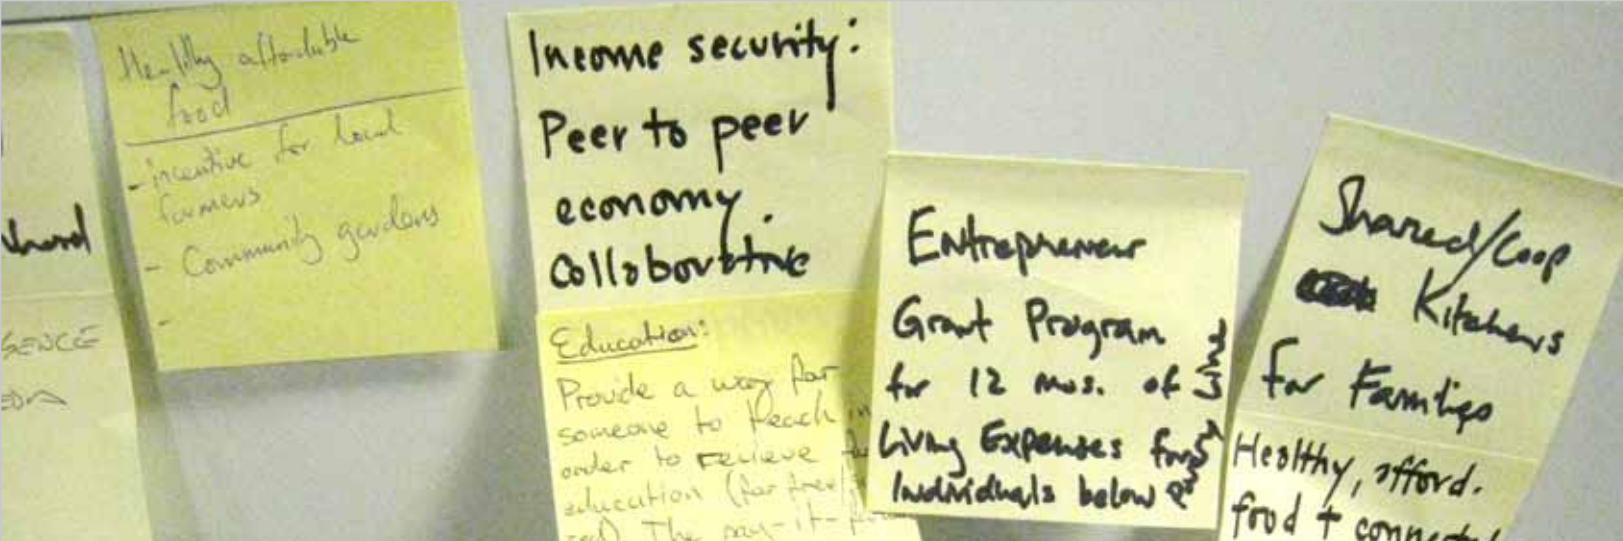 shared
GENCE
EDA
Healthy affordable
food
- incentive for local
farmers
- Community gardens
-
Income security:
Peer to peer
economy.
Collaborative
Education:
Provide a way for
someone to teach in
order to recieve
education (for free/
The pay-it-for
Entrepreneur
Grant Program
for 12 mos. of
Living Expenses for
Individuals below
poverty line
Shared/Coop
Kitchens
for Families
Healthy, afford.
food + connected